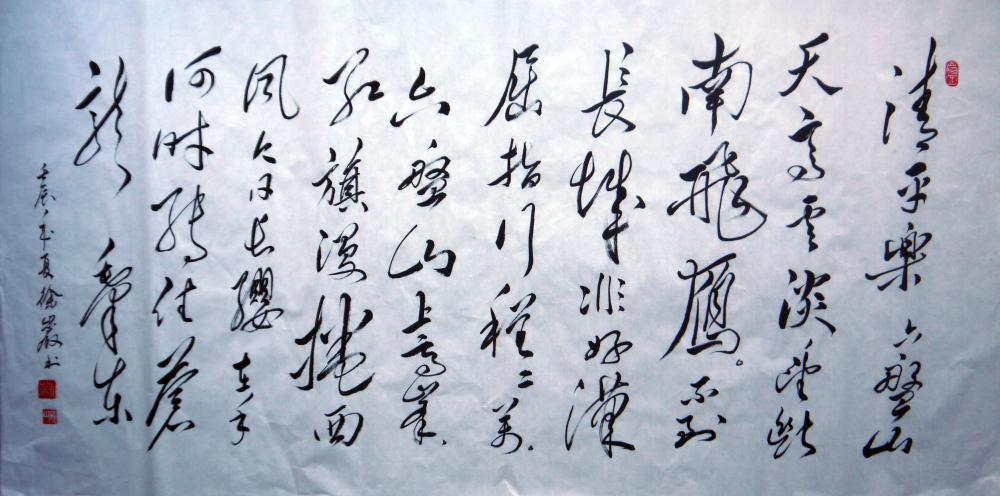 清平樂 六盤山
天高雲淡望斷
南飛鴈。不到
長城非好漢
屈指行程二萬
六盤山上高峯
紅旗漫捲西
風今日長纓在手
何時縛住蒼
龍 東
壬辰年夏徐書